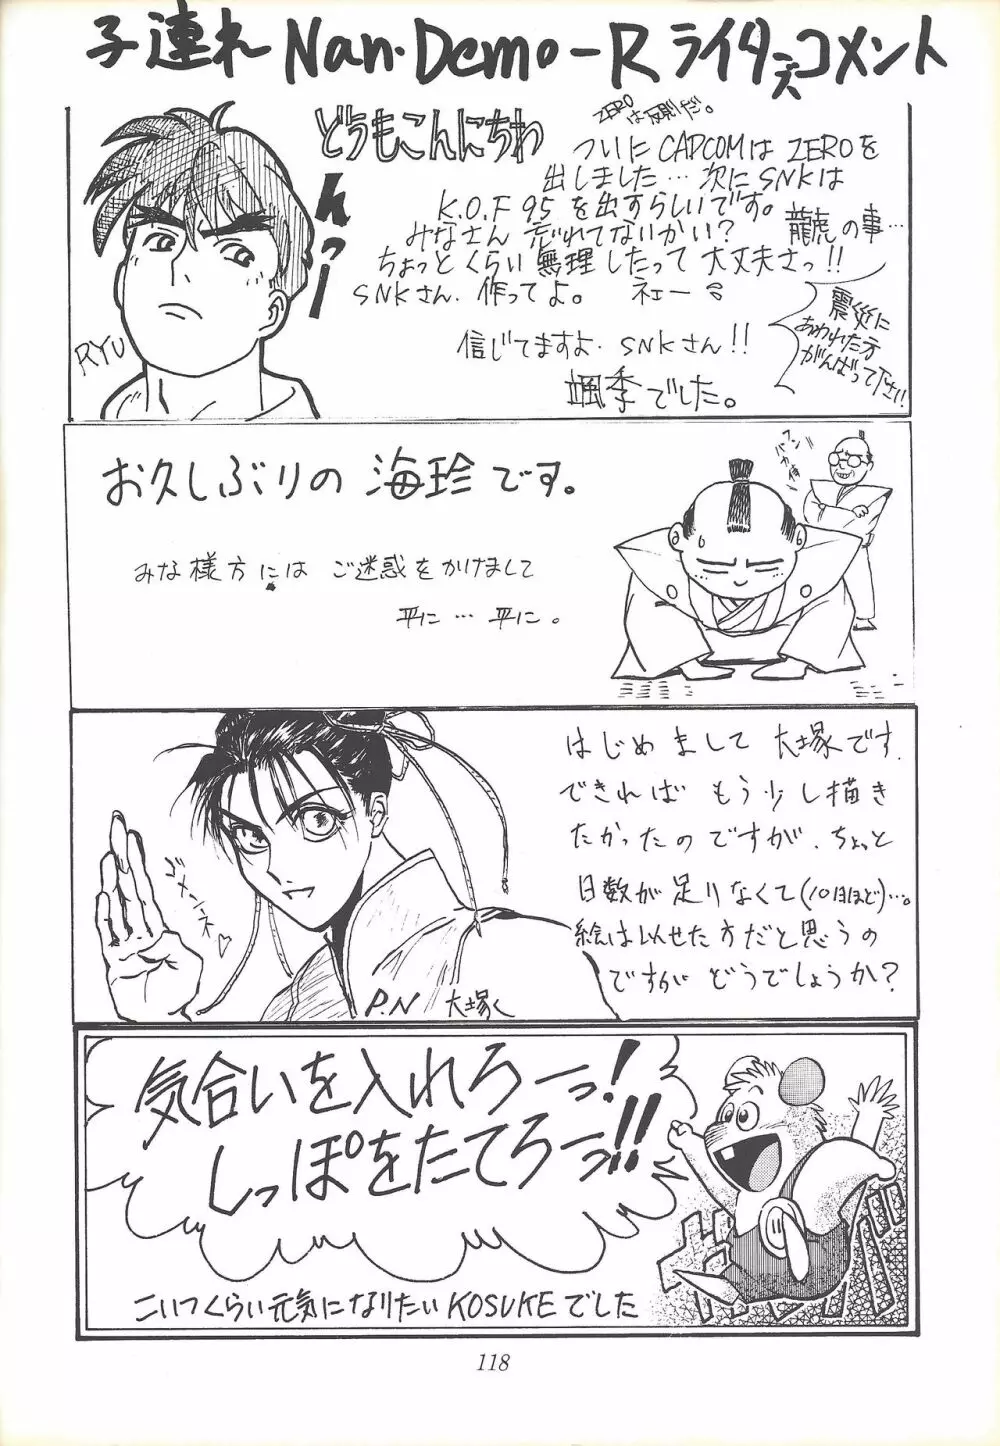 子連れ Nan・Demo-R ライターズコメント
どうもこんにちわ
んっー
RYU
ZEROは反則だ。
ついに CAPCOMは ZEROを
出しました…次に SNKは
K.O.F 95 を出すらしいです。
みなさん 忘れてないかい? 龍虎の事…
ちょっとくらい無理したって大丈夫さっ!!
SNKさん.作ってよ。 ネェー
信じてますよ.SNKさん!!
颯季でした。
震災に
あわれた方
がんばって下さい!!
お久しぶりの 海珍です。
みな様方には ご迷惑をかけまして
平に… 平に。
はじめまして 大塚です.
できれば もう少し描き
たかったのですが、ちょっと
日数が足りなくて(10日ほど)…。
絵は似せた方だと思うの
ですが どうでしょうか?
ゴメーネ♡
P.N 大塚く
気合いを入れろーっ!
しっぽをたてろーっ!!
こいつくらい元気になりたい KOSUKEでした
118